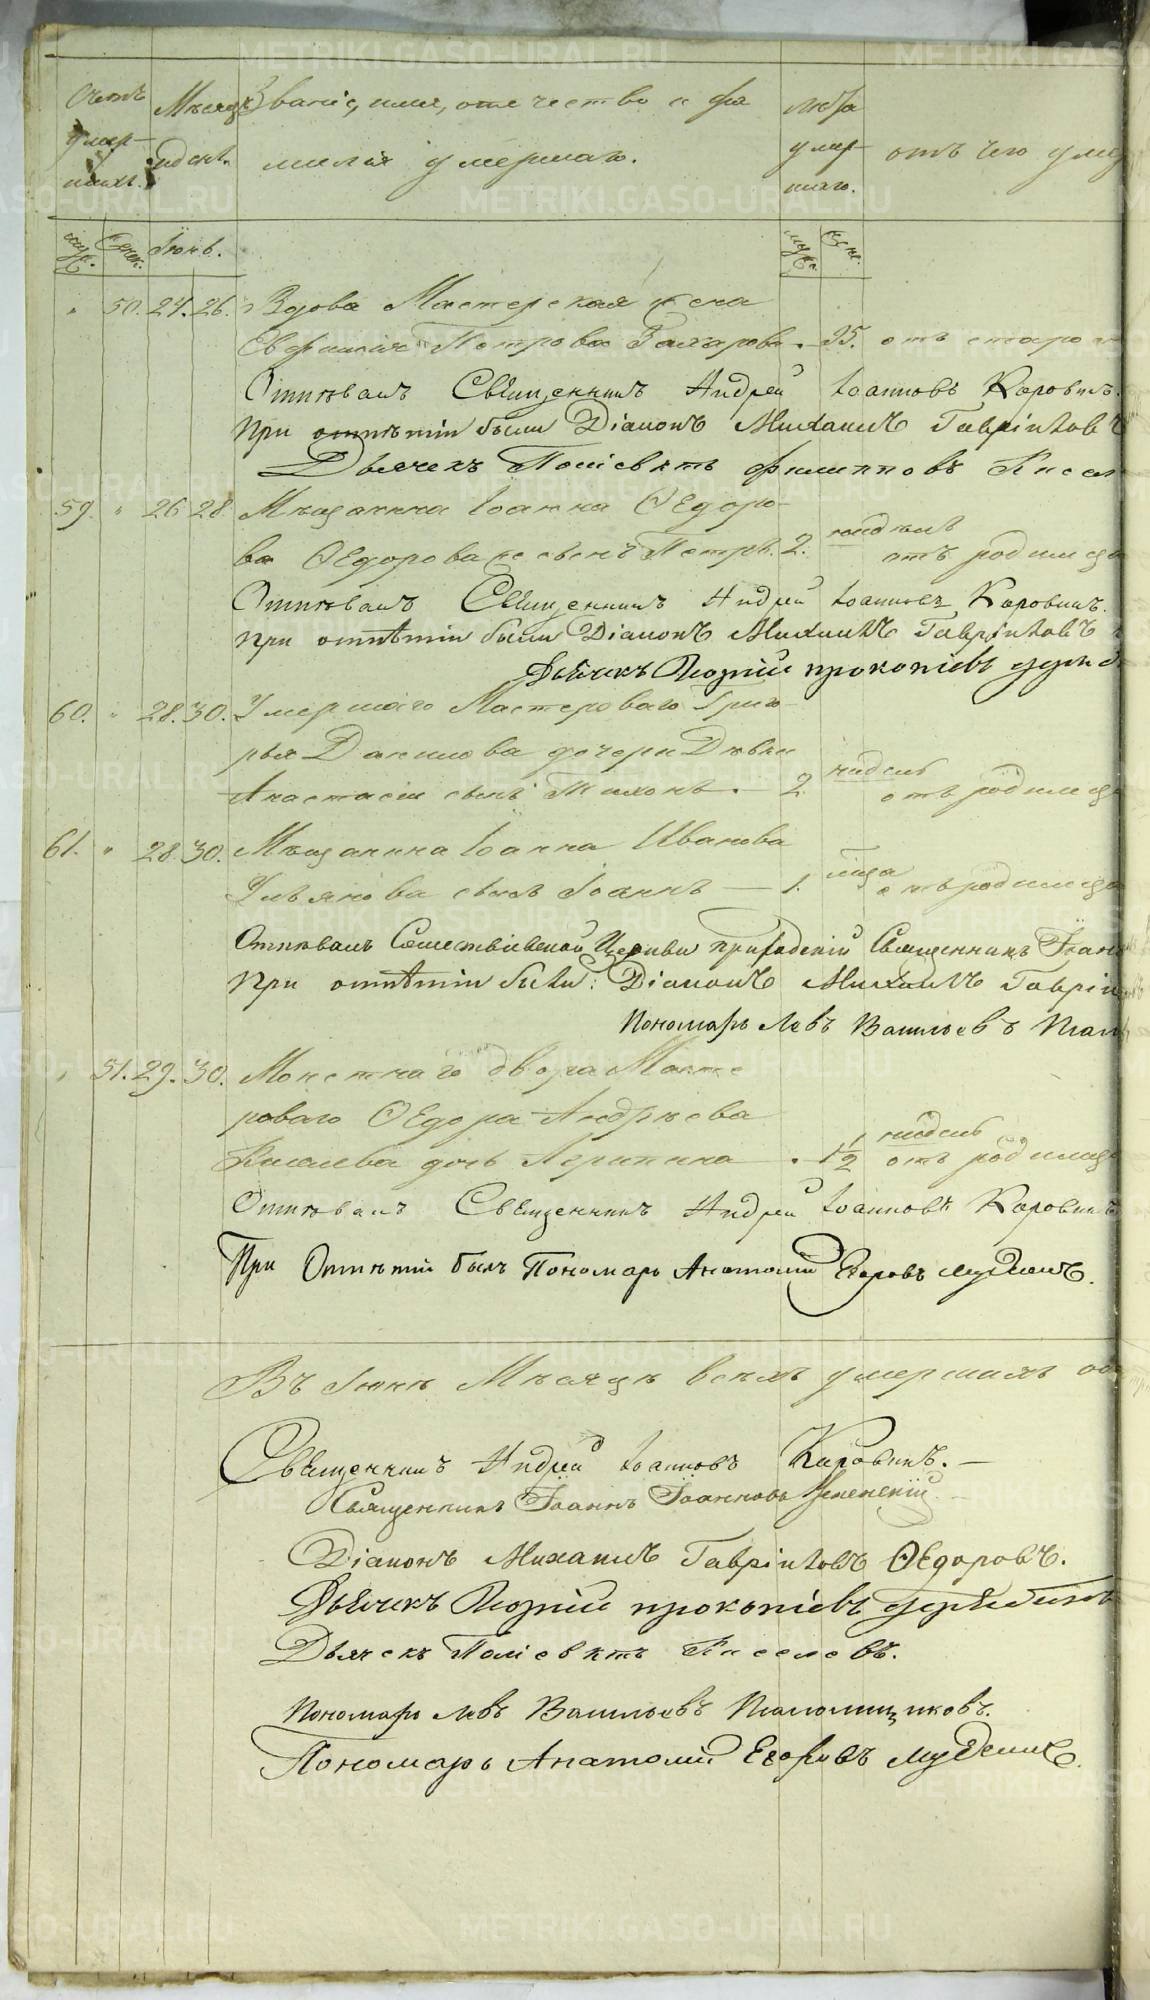 Счетъ Мѣсяцъ Званіе, имя, отечество и фа лѣта
умер- и день. милія умершаго. умер- отъ чего умер
шихъ. шаго.
муж. женс. Іюнь. муж. женс.
" 50. 24. 26. Вдова Мастерская жена
Евфимія Петрова Захарова. 95. отъ старо
Отпѣвалъ Священникъ Андрей Іоанновъ Коровинъ.
При отпѣтіи были Діаконъ Михаилъ Гавріиловъ
Дьячекъ Поліевктъ Филипповъ Кисел
59. " 26 28. Мѣщанина Іоанна Ѳедоро-
ва Ѳедорова сынъ Петръ. 2. недѣль отъ родимца
Отпѣвалъ Священникъ Андрей Іоанновъ Коровинъ.
При отпѣтіи были Діаконъ Михаилъ Гавріиловъ
Дьячекъ Георгій Прокопіевъ
60. " 28. 30. Умершаго Мастероваго Григо-
рья Данилова дочери Дѣвки
Анастасіи сынъ Тихонъ. 2 недель отъ родимца
61. " 28. 30. Мѣщанина Іоанна Иванова
Ульянова сынъ Іоаннъ — 1. года отъ родимца
Отпѣвалъ Сошественской Церкви Священникъ Іоан
При отпѣтіи были: Діаконъ Михаилъ Гавріи
Пономарь Левъ Васильевъ
" 51. 29. 30. Монетнаго двора Масте
роваго Ѳедора Андрѣева
Киселева дочь Агрипина . 1½ недель отъ родимца
Отпѣвалъ Священникъ Андрей Іоанновъ Коровинъ
При Отпѣтіи былъ Пономарь Анатолій Егоровъ
Въ Іюнѣ Мѣсяцѣ всѣхъ умершихъ об
Священникъ Андрей Іоанновъ Коровинъ. —
Священникъ Іоаннъ Іоанновъ Успенскій
Діаконъ Михаилъ Гавріиловъ Ѳедоровъ.
Дьячекъ Георгій Прокопіевъ
Дьячекъ Поліевктъ Киселевъ.
Пономарь Левъ Васильевъ
Пономарь Анатолій Егоровъ
METRIKI.GASO-URAL.RU